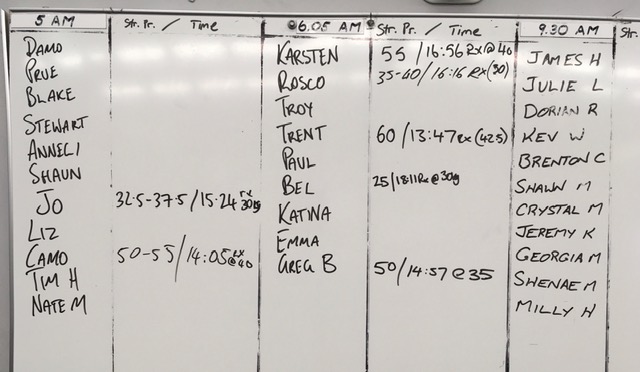 5 AM
Str. Pr. / Time
DAMO
PRUE
BLAKE
STEWART
ANNELI
SHAUN
JO 32.5-37.5/15.24 rx 30kg
LIZ
CAMO 50-55/14:05 rx @40
TIM H
NATE M
6.05 AM
Str. Pr. / Time
KARSTEN 55/16:56 Rx@40
ROSCO 35-40/16:16 Rx(30)
TROY
TRENT 60/13:47 rx (42.5)
PAUL
BEL 25/18:11 Rx@30kg
KATINA
EMMA
GREG B 50/14:57@35
9.30 AM
JAMES H
JULIE L
DORIAN R
KEV W
BRENTON C
SHAWN M
CRYSTAL M
JEREMY K
GEORGIA M
SHENAE M
MILLY H
Str.